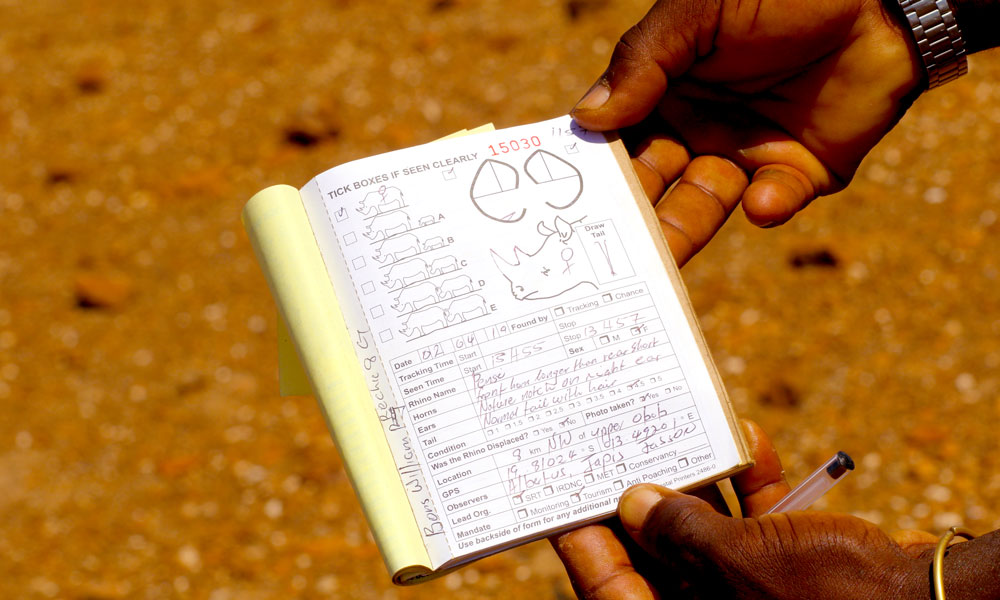 TICK BOXES IF SEEN CLEARLY 15030
A
B
C
D
E
Draw
Tail
Date 02 04 19 Found by Tracking Chance
Tracking Time Start Stop
Seen Time Start 13 455 Stop 13 457
Rhino Name Sex M F
Horns Front horn longer than rear short
Ears Nature notch on right ear
Tail Normal tail with hair
Condition 1 1.5 2 2.5 3 3.5 4 4.5 5
Was the Rhino Displaced? Yes No Photo taken? Yes No
Location 8 km NW of upper
GPS 19. 81024 S 013. 49201 E
Observers Albertus, Tapis
Lead Org. SRT IRDNC MET Conservancy
Mandate Monitoring Tourism Anti Poaching Other
Use backside of form for any additional
Printers 2486-0
William